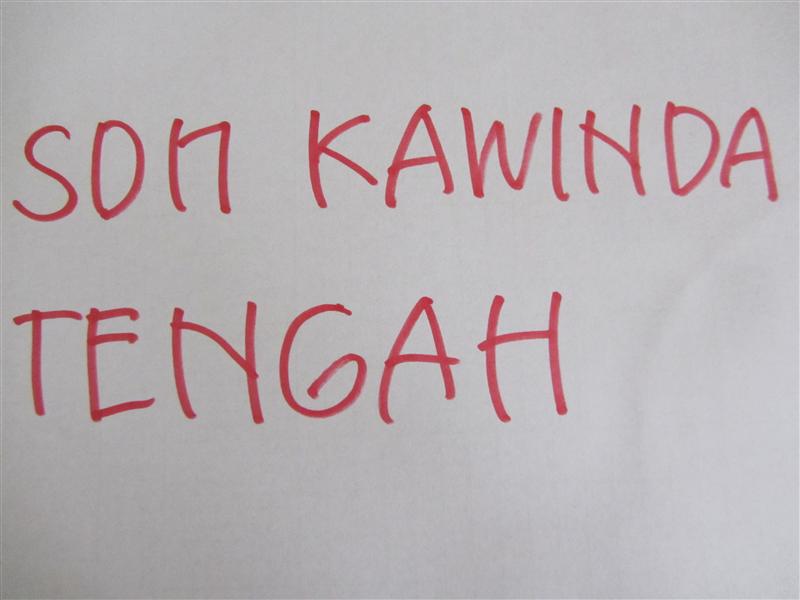 SDN KAWINDA
TENGAH